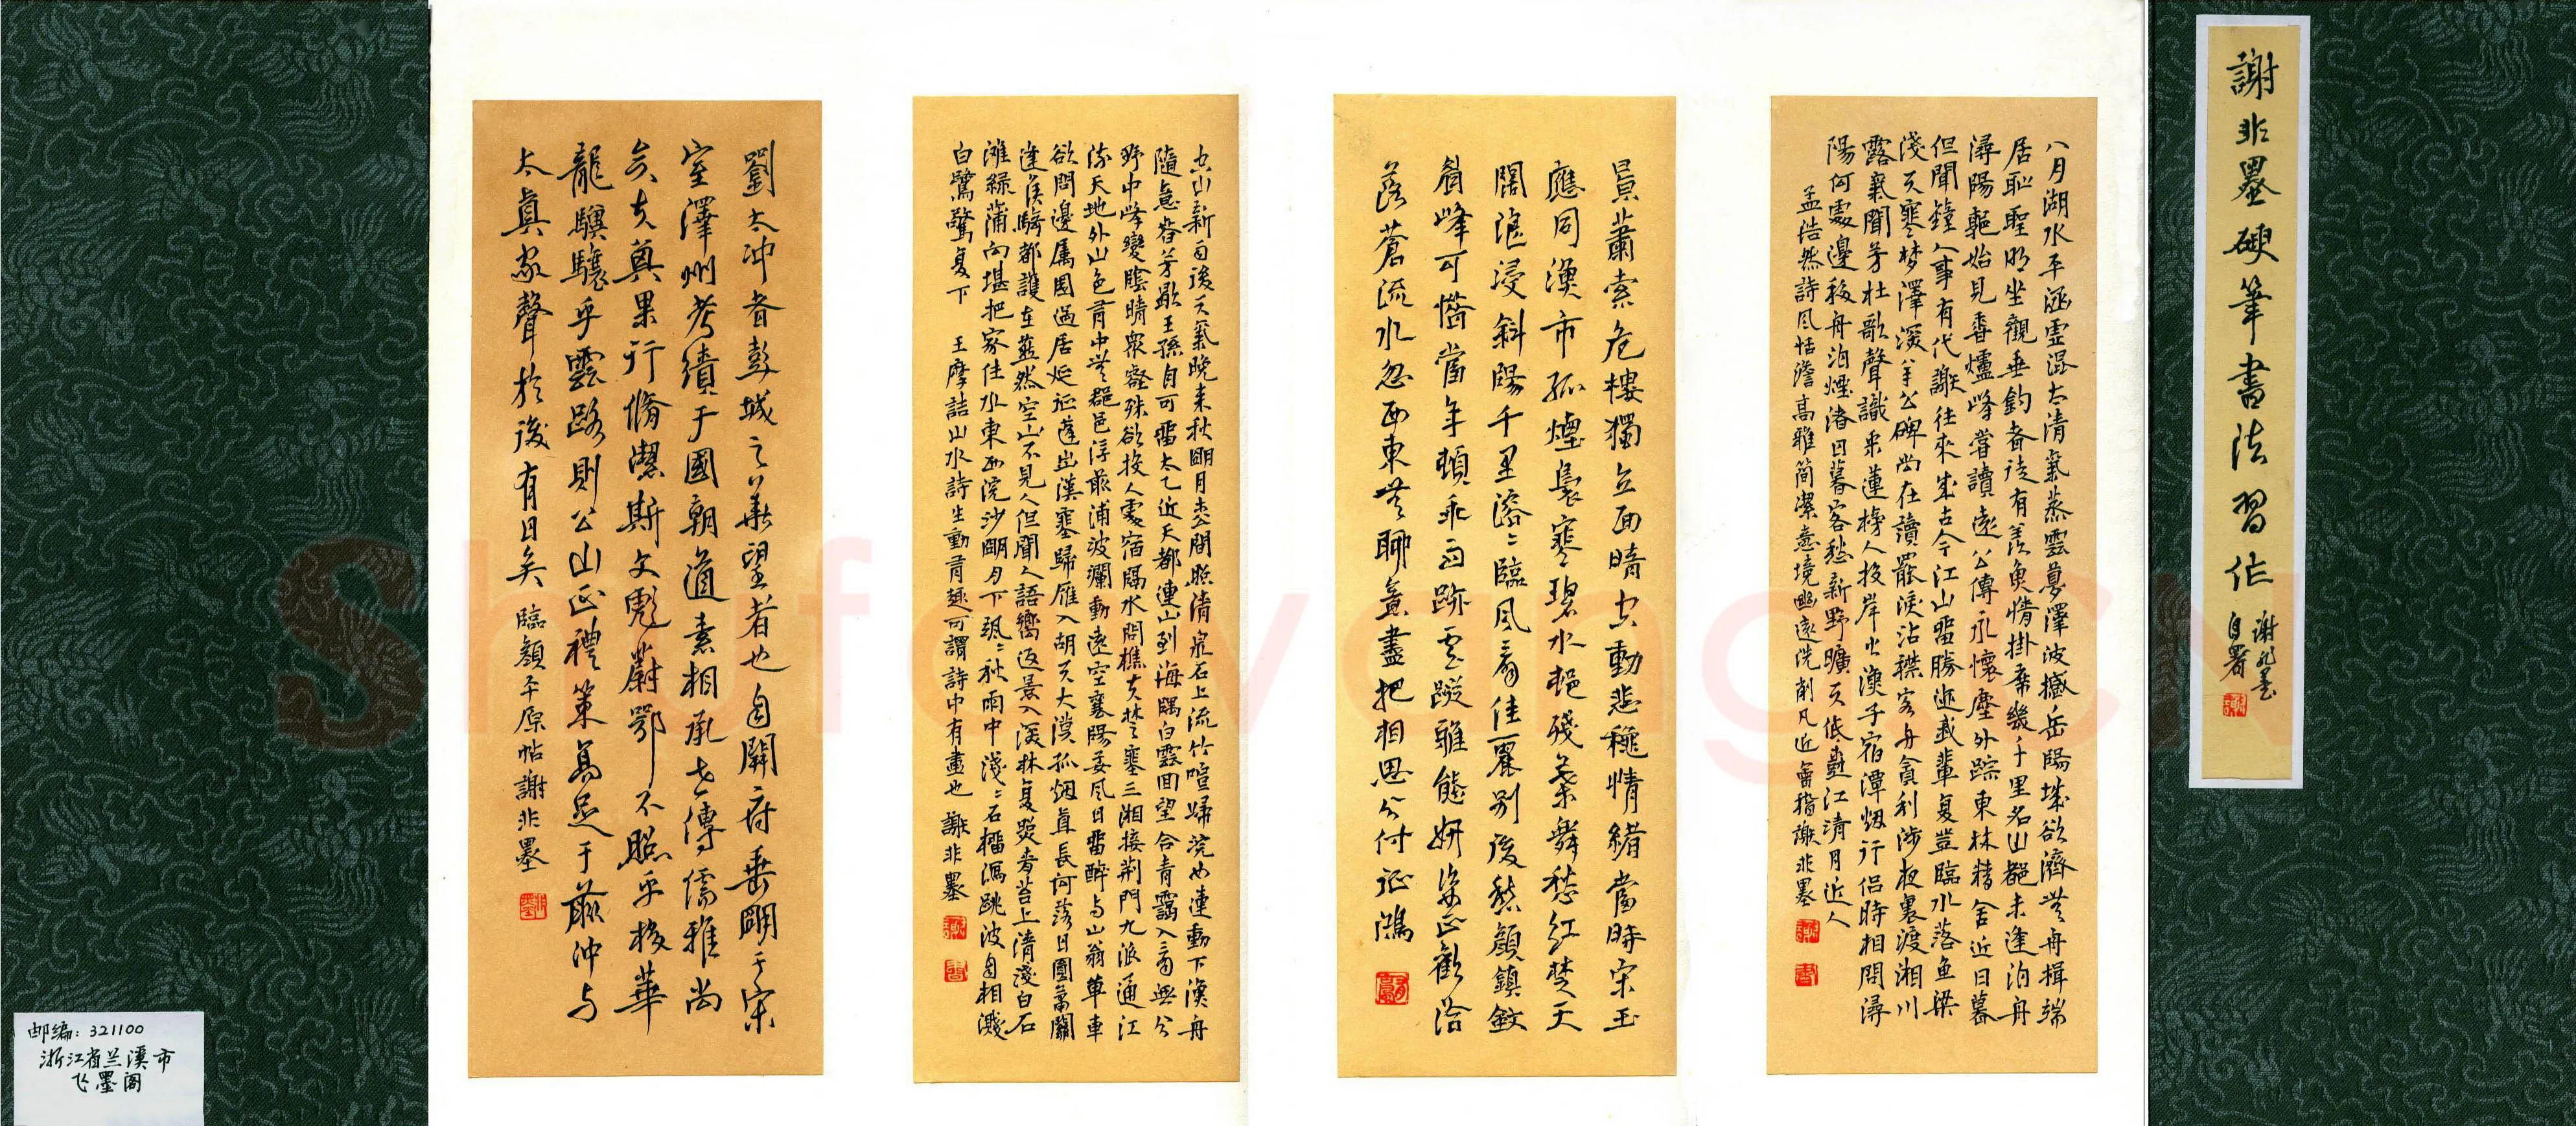 謝非墨硬筆書法習作
謝非墨
自署
八月湖水平涵虛混太清氣蒸雲夢澤波撼岳陽城欲濟無舟楫端
居恥聖明坐觀垂釣者徒有羨魚情掛席幾千里名山都未逢泊舟
潯陽郭始見香爐峰嘗讀遠公傳永懷塵外踪東林精舍近日暮
但聞鐘人事有代謝往來成古今江山留勝迹我輩復豈臨水落魚梁
淺天寒夢澤深羊公碑尚在讀罷淚沾襟客舟貪利涉夜裏渡湘川
露氣聞芳杜歌聲識采蓮榜人投岸火漁子宿潭烟行侶時相問潯
陽何處邊移舟泊煙渚日暮客愁新野曠天低樹江清月近人
孟浩然詩風恬澹高雅簡潔意境幽遠洗削凡近會指謝非墨
景蕭索危樓獨立面晴空動悲穐情緒當時宋玉
應同漁市孤煙裊寒碧水邨殘葉舞愁紅楚天
闊浪浸斜陽千里溶〻臨風看佳麗別後愁顏鎮斂
眉峰可惜當年頓乖雨跡雲蹤雅態妍姿正歡洽
落花流水忽西東無聊意盡把相思分付征鴻
空山新雨後天氣晚来秋明月松間照清泉石上流竹喧歸浣女蓮動下漁舟
隨意春芳歇王孫自可留太乙近天都連山到海隅白雲回望合青靄入看無分
野中峰變陰晴衆壑殊欲投人處宿隔水問樵夫楚塞三湘接荆門九派通江
流天地外山色有中無郡邑浮前浦波瀾動遠空襄陽好風日留醉与山翁單車
欲問邊属國過居延征蓬出漢塞歸雁入胡天大漠孤烟直長河落日圓蕭關
逢候騎都護在燕然空山不見人但聞人語響返景入深林復照青苔上清淺白石
灘綠蒲向堪把家住水東西浣沙明月下颯〻秋雨中淺〻石榴瀉跳波自相濺
白鷺驚复下 王摩詰山水詩生動有趣可謂詩中有畫也 謝非墨
劉太冲者彭城之華望者也自開府垂明于宋
室澤州考績于國朝道素相承世傳儒雅尚
矣夫其果行脩潔斯文彪蔚鄂不照乎移華
龍驥驤乎雲路則公山正禮策高足于前冲与
太真家聲於後有日矣 臨顏平原帖謝非墨
邮编：321100
浙江省兰溪市
飞墨阁
Shufawang.CN